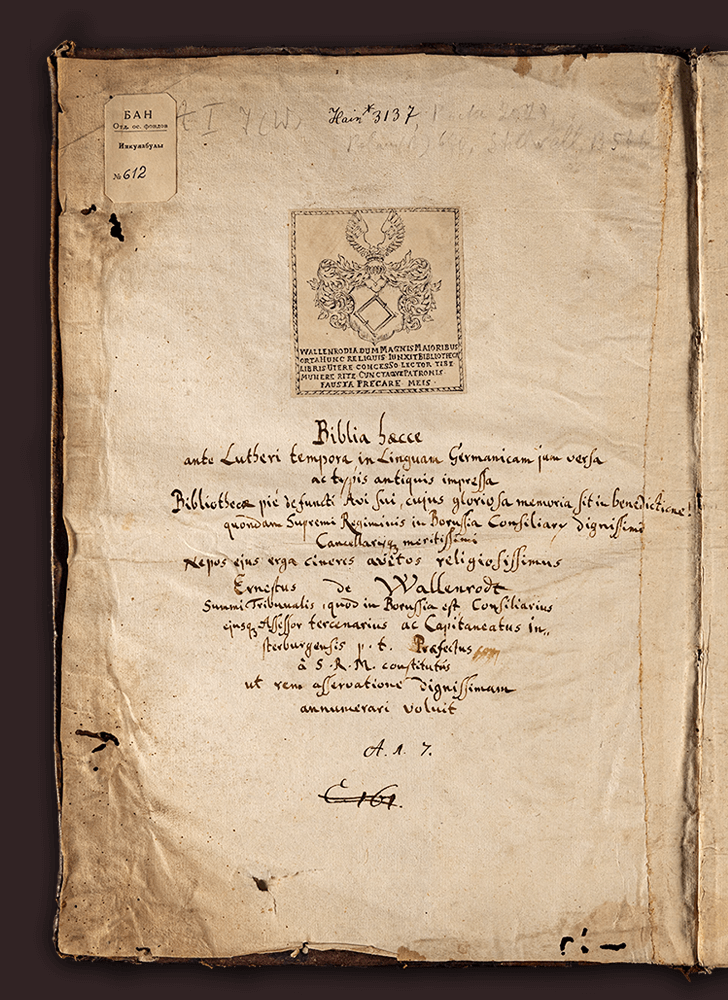 БАН
Отд. ос. фондов
Инкунабулы
№ 612
Hain* 3137
WALLENRODIA DUM MAGNIS MAIORIBUS
ORTA HUNC RELIQUIS IUNXIT BIBLIOTHECA
LIBRIS UTERE CONCESSO LECTOR TIBI
MUNERE RITE CUNCTAQUE PATRONIS
FAUSTA PRECARE MEIS.
Biblia hæcce
ante Lutheri tempora in Linguam Germanicam jam versa
ac typis antiquis impressa
Bibliothecæ piè defuncti Avi sui, cujus gloriosa memoria sit in benedictione!
quondam Supremi Regiminis in Borussia Consiliarij dignissimi
Cancellarijq meritissimi
Nepos ejus erga cineres avitos religiosissimus
Ernestus de Wallenrodt
Summi Tribunalis, quod in Borussia est Consiliarius
ejusq Assessor tercenarius ac Capitaneatus In„
sterburgensis p. t. Præfectus
â S. R. M. constitutus
ut rem asservatione dignissimam
annumerari voluit
A. 1. 7.
C 161.